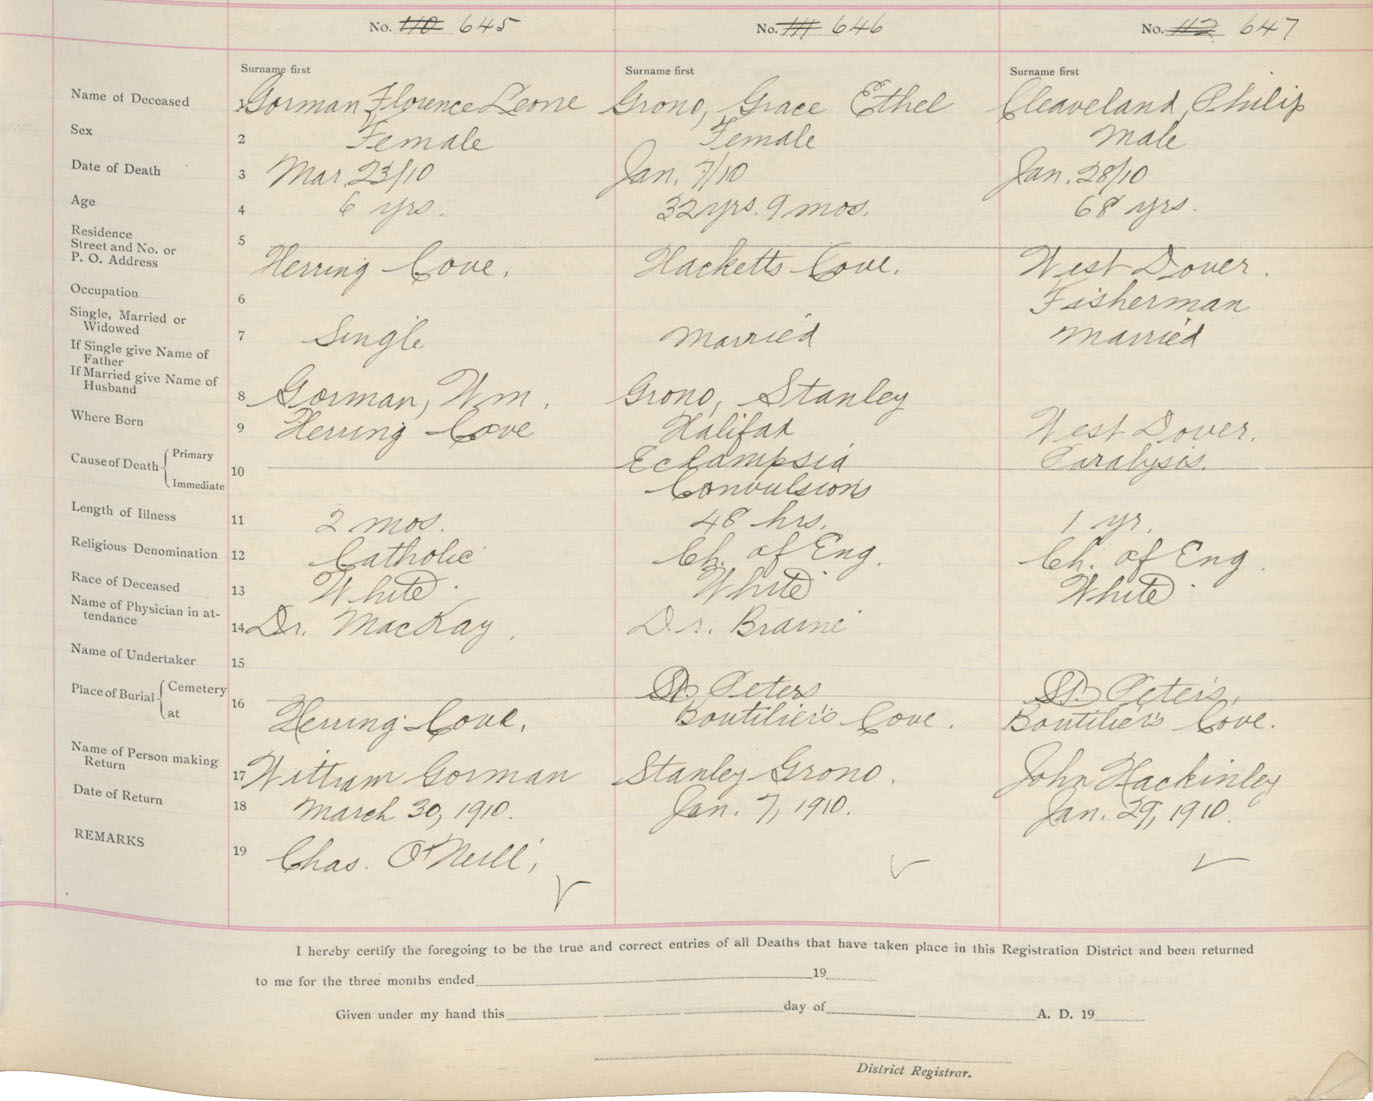 No. 110 645 No. 111 646 No. 112 647
Surname first Surname first Surname first
Name of Deceased 1 Gorman, Florence Leone Grono, Grace Ethel Cleaveland, Philip
Sex 2 Female Female Male
Date of Death 3 Mar. 23/10 Jan. 7/10 Jan. 28/10
Age 4 6 yrs. 32 yrs. 9 mos. 68 yrs.
Residence
Street and No. or 5
P. O. Address Herring Cove. Hacketts Cove. West Dover.
Occupation 6 Fisherman
Single, Married or
Widowed 7 Single Married Married
If Single give Name of
Father
If Married give Name of
Husband 8 Gorman, Wm. Grono, Stanley
Where Born 9 Herring Cove Halifax West Dover.
Cause of Death Primary 10 Eclampsia Paralysis.
Immediate Convulsions
Length of Illness 11 2 mos. 48 hrs. 1 yr.
Religious Denomination 12 Catholic Ch. of Eng. Ch. of Eng.
Race of Deceased 13 White White White
Name of Physician in at-
tendance 14 Dr. MacKay. Dr. Braine
Name of Undertaker 15
Place of Burial Cemetery 16 St. Peters St. Peter's,
at Herring Cove. Boutilier's Cove. Boutilier's Cove.
Name of Person making
Return 17 William Gorman Stanley Grono. John Hackinley
Date of Return 18 March 30, 1910. Jan. 7, 1910. Jan. 29, 1910.
REMARKS 19 Chas. O'Neill,
I hereby certify the foregoing to be the true and correct entries of all Deaths that have taken place in this Registration District and been returned
to me for the three months ended 19
Given under my hand this day of A. D. 19
District Registrar.